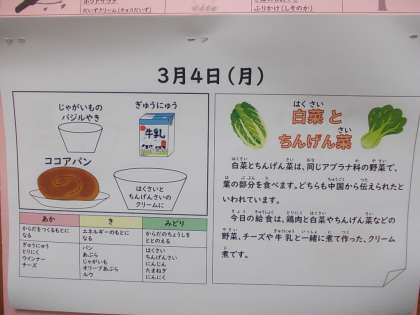 カップサラダ
だいずクリーム(チョコだいず)
ふりかけ(しそのか)
3月4日(月)
じゃがいもの
バジルやき
ぎゅうにゅう
牛乳
ココアパン
はくさいと
ちんげんさいの
クリームに
あか
き
みどり
からだをつくるもとに
なる
エネルギーのもとに
なる
からだのちょうしを
ととのえる
ぎゅうにゅう
とりにく
ウインナー
チーズ
パン
あぶら
じゃがいも
オリーブあぶら
ルウ
はくさい
ちんげんさい
にんじん
たまねぎ
にんにく
はくさい
白菜と
さい
ちんげん菜
白菜とちんげん菜は、同じアブラナ科の野菜で、
葉の部分を食べます。どちらも中国から伝えられたと
いわれています。
今日の給食は、鶏肉と白菜やちんげん菜などの
野菜、チーズや牛乳と一緒に煮て作った、クリーム
煮です。